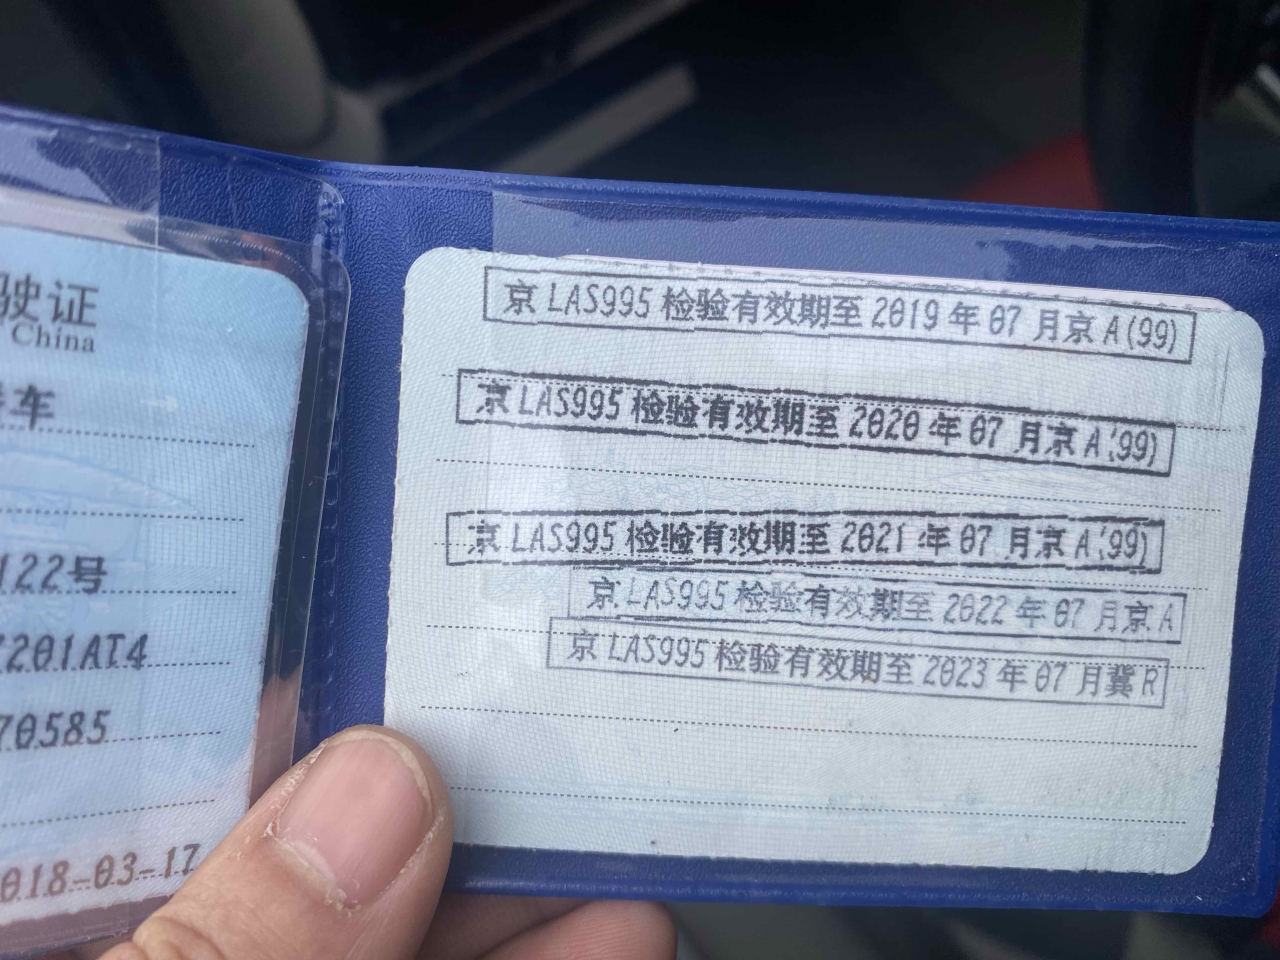 驶证
China
车
122号
7201AT4
70585
018-03-17
京LAS995检验有效期至2019年07月京A(99)
京LAS995检验有效期至2020年07月京A(99)
京LAS995检验有效期至2021年07月京A(99)
京LAS995检验有效期至2022年07月京A
京LAS995检验有效期至2023年07月冀R